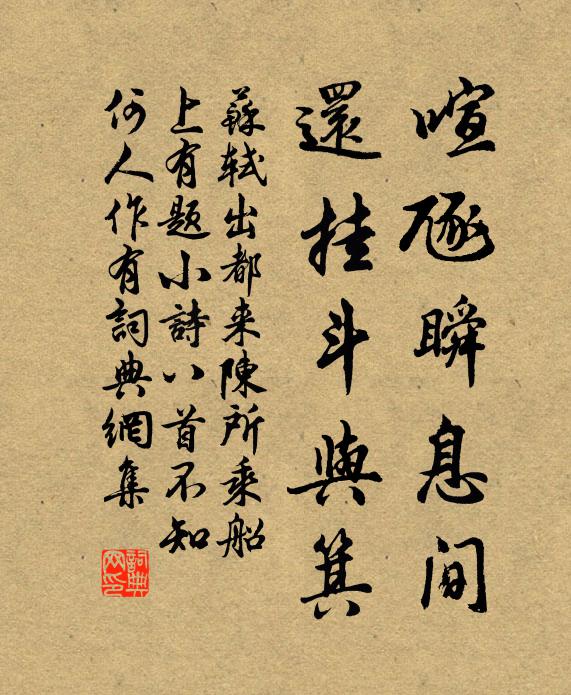 喧豗瞬息間
還挂斗與箕
蘇軾出都来陳所乘船
上有題小詩八首不知
何人作有詞典網集
詞典网印